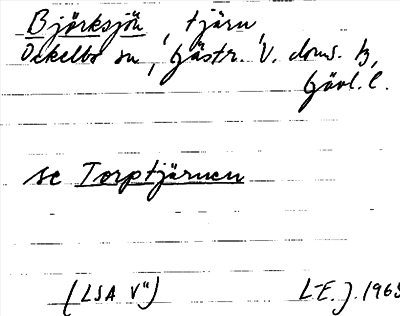 Björksjön, tjärn,
Ockelbo sn, Gästr. V. doms. tg,
Gävl. l.
se Torptjärnen
(LSA V") L-E. J. 1963